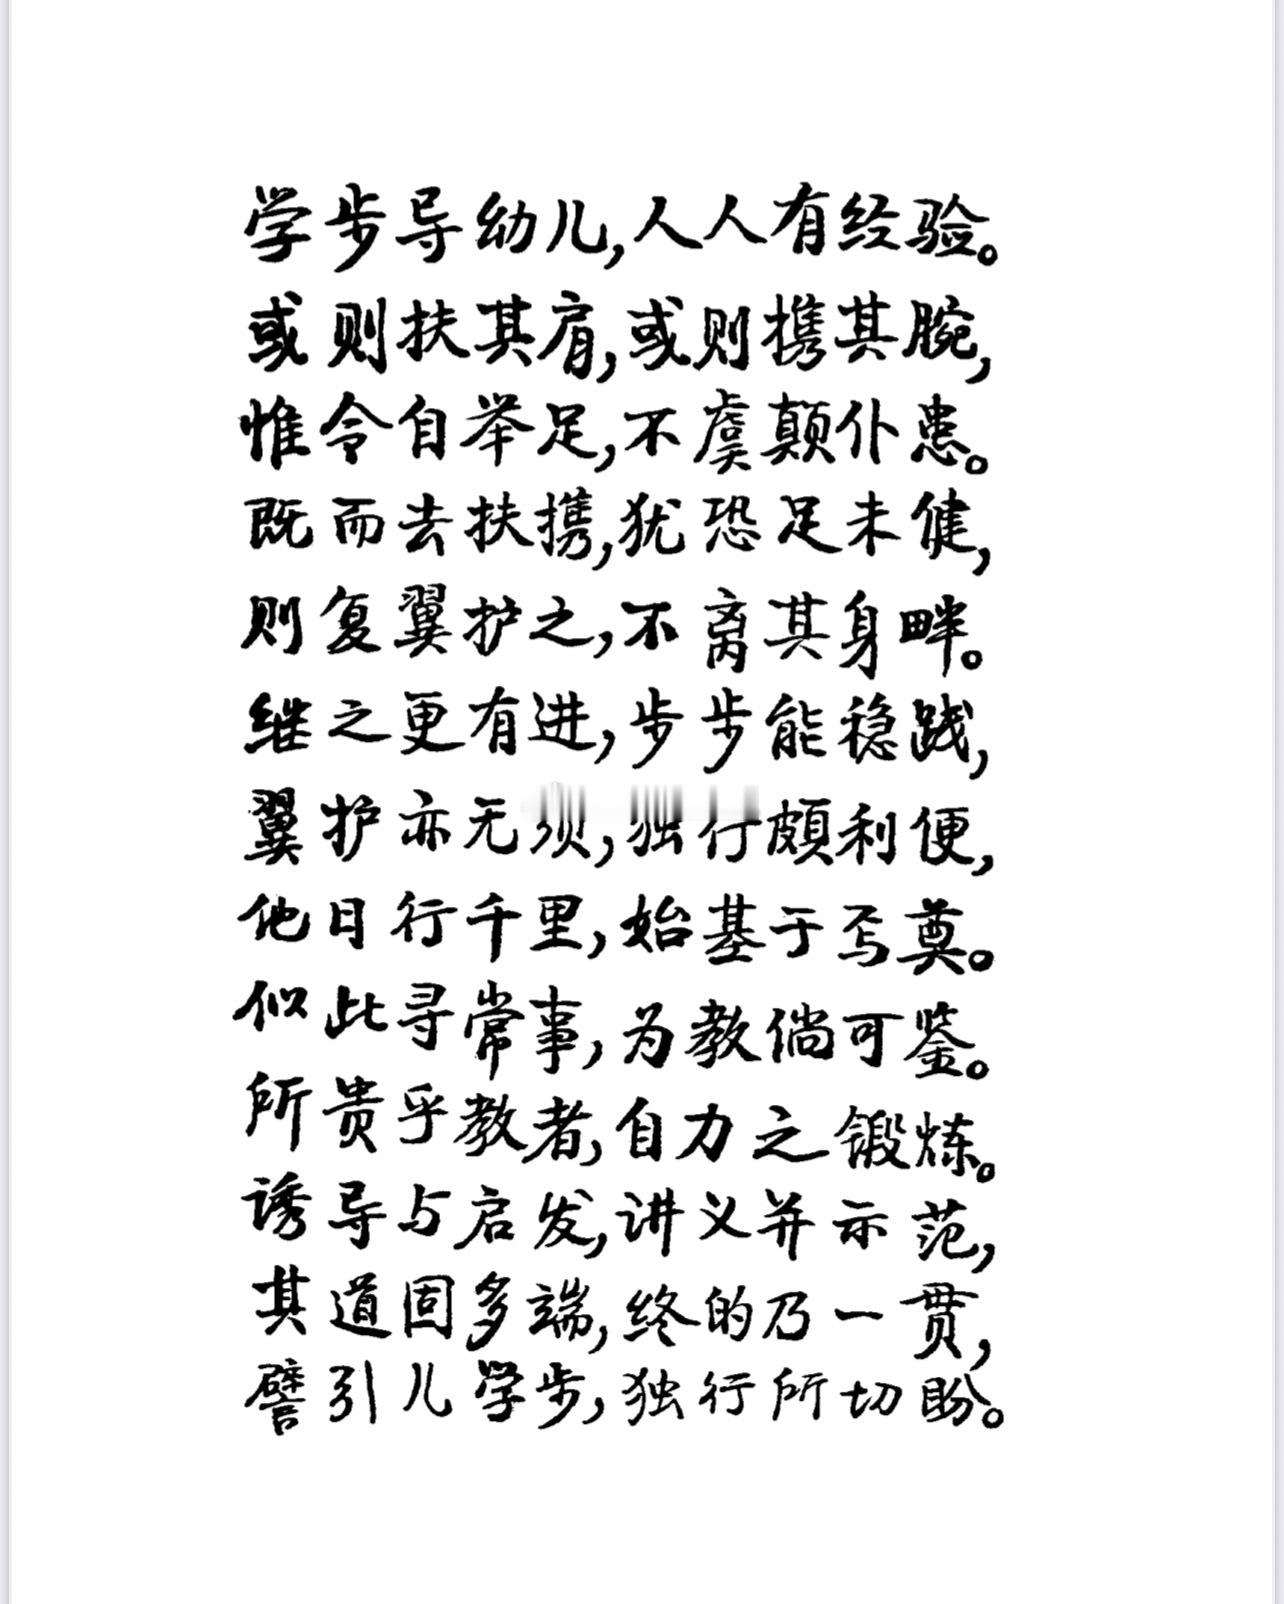 学步导幼儿,人人有经验。
或则扶其肩,或则携其腕,
惟令自举足,不虞颠仆患。
既而去扶携,犹恐足未健,
则复翼护之,不离其身畔。
继之更有进,步步能稳践,
翼护亦无须,独行颇利便,
他日行千里,始基于焉奠。
似此寻常事,为教倘可鉴。
所贵乎教者,自力之锻炼。
诱导与启发,讲义并示范,
其道固多端,终的乃一贯,
譬引儿学步,独行所切盼。